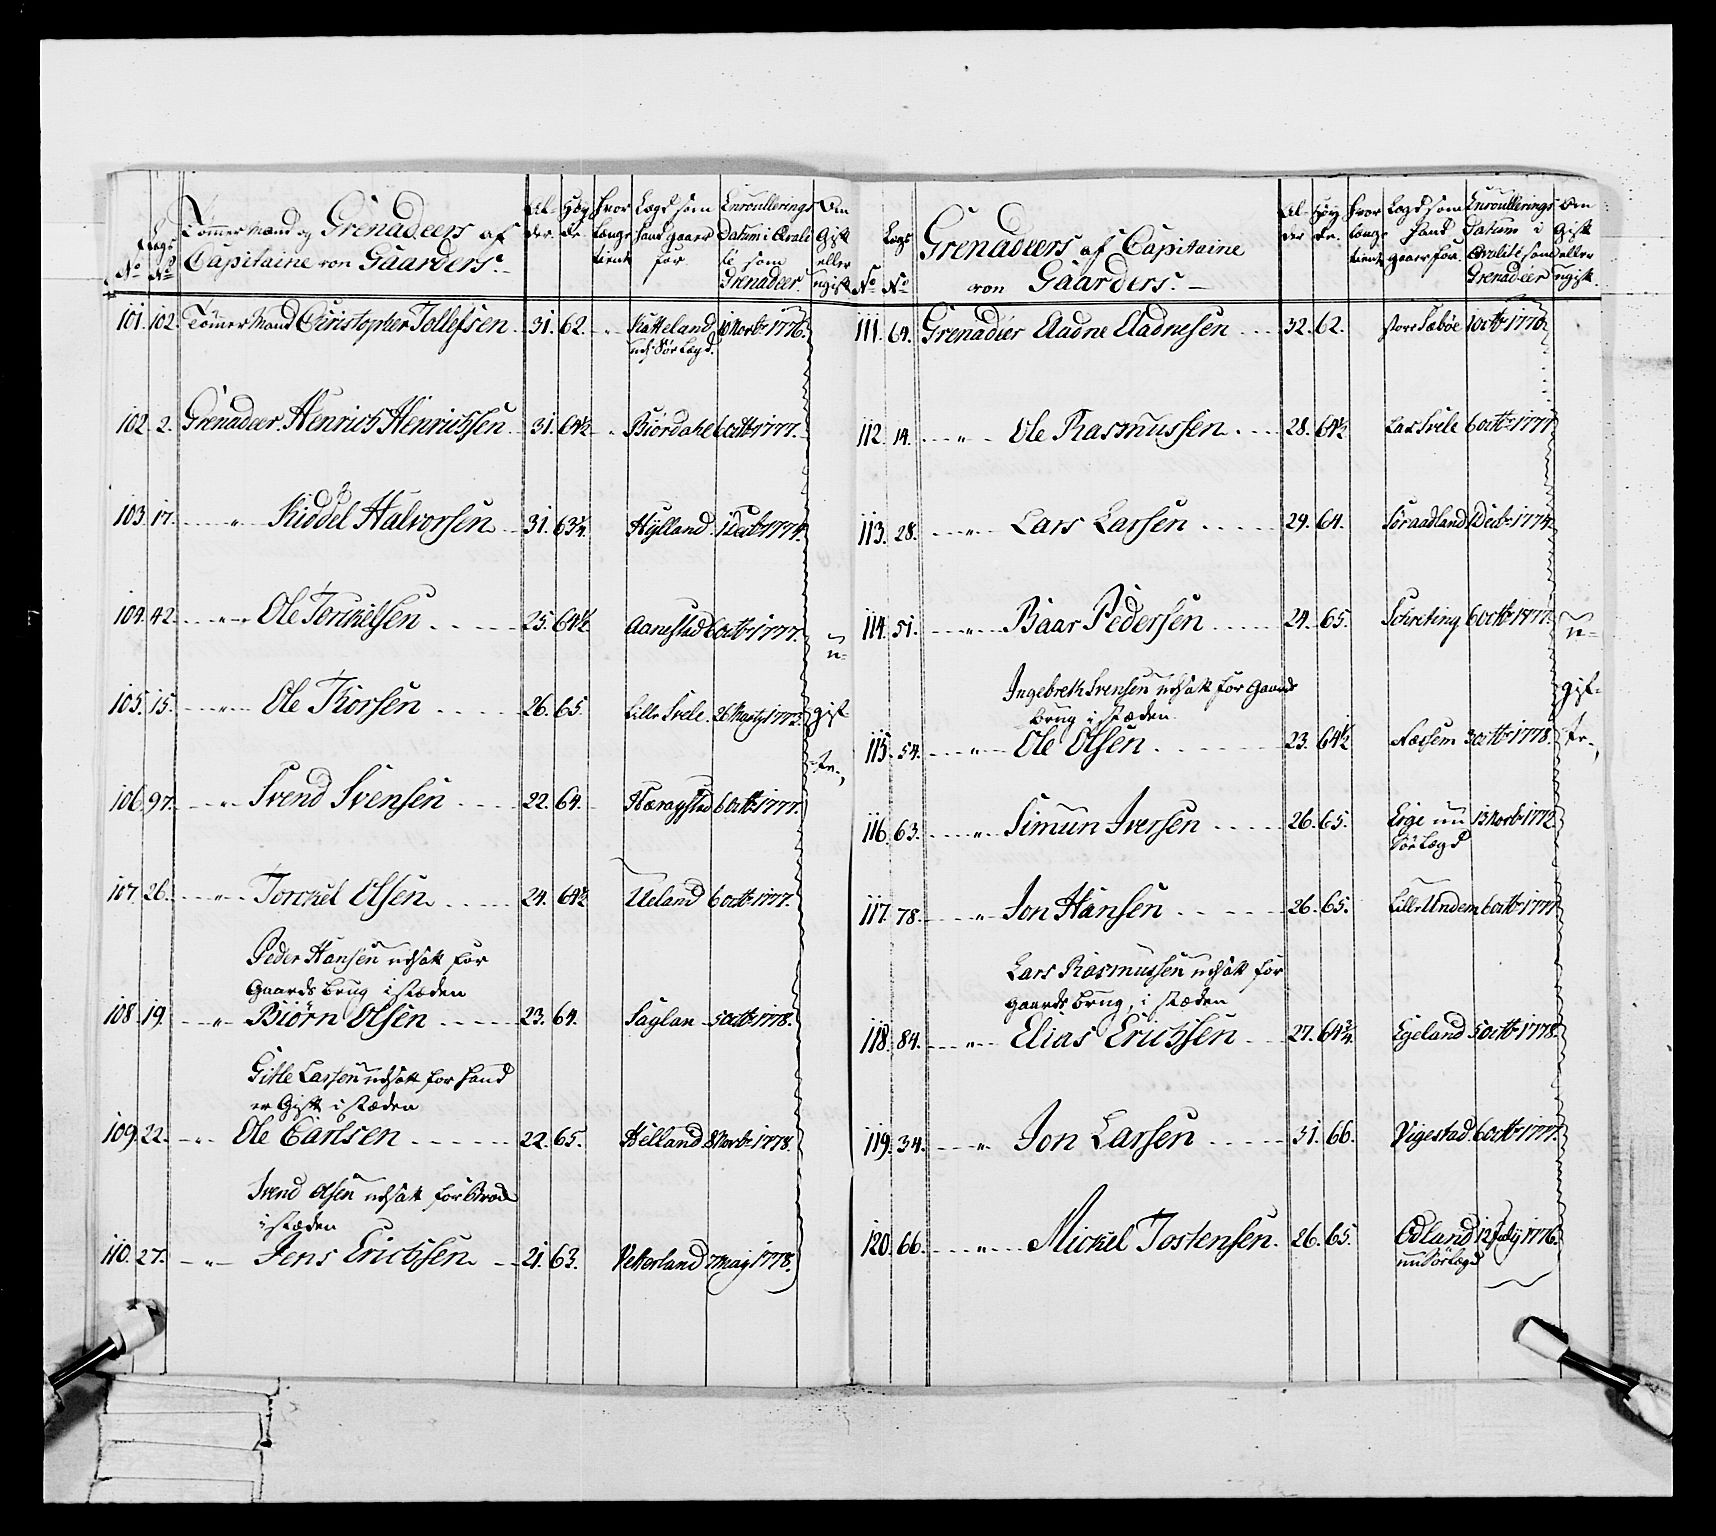 Tömmer Mand og Grenadeers af
Capitaine von Gaarders.
No
Lægs No
Al-
der.
Høy
de.
hvor
længe
tient
Lægd som
hand gaaer
for
Enroullerings
Datum i Qvali
té som
Grenadeer.
Om
Gift
eller
ugift
101. 102. Tömmer Mand Christopher Tollefsen 31. 62. Katteland 10 Novbr 1776.
udj Sör Lægd.
102. 2. Grenadeer Henrich Henrichsen 31. 64½ Biördahl 6 octbr 1777.
103. 17. " Kiddel Halvorsen 31. 63¼ Hylland 1 Decbr 1774.
104. 42. " Ole Torkielsen 25. 64½ Aanestad 6 octbr 1777.
105. 15. " Ole Thorsen 26. 65. Lille Svele 26 Marty 1773.
106. 97. " Svend Svensen 22. 64. 6 octbr 1777.
107. 26. " Torckel Olsen 24. 64½ Ueland 6 octbr 1777.
Peder Hansen udsatt for
Gaards Brug i stæden
108. 19. " Biörn Olsen 23. 64. Saglan 5 octbr 1778.
Gitle Larsen udsatt for hand
er Gift i stæden
109. 22. " Ole Carlsen 22. 65. Helland 8 Novbr 1778.
Svend Olsen udsatt for Brock
i stæden
110. 27. " Jens Erichsen 21. 63. Vetterland 7 May 1778.
u-
gif
te,
No
Lægs
No
Grenadeers af Capitaine
von Gaarders.
Al-
der
Høy
de.
hvor
længe
tient
Lægd som
hand
gaaer for.
Enroullerings
Datum i
Qvalité som
Grenadeer
Om
Gift
eller
ugift.
111. 64. Grenadeer Aadne Aadnesen 32. 62. store Sæböe 1 octbr 1770
112. 14. " Ole Rasmussen 28. 64½ Lax Svele 6 octbr 1777
113. 28. " Lars Larsen 29. 64. Söraadland 1 Decbr 1774.
114. 51. " Baar Pedersen 24. 65. Schreting 6 octbr 1777.
Ingebreth Svensen udsatt for Gaards
Brug i stæden
115. 54. " Ole Olsen 23. 64½ Næssem 3 octbr 1778.
116. 63. " Simun Iversen 26. 65. Eige nu 13 Novbr 1772
Sör Lægd
117. 78. " Jon Hansen 26. 65. Lille Undem 6 octbr 1777
Lars Rasmussen udsatt for
gaards Brug, i stæden
118. 84. " Elias Erichsen 27. 64¾ Egeland 5 octbr 1778.
119. 34. " Jon Larsen 31. 66. Vigestad 6 octbr 1777.
120. 66. " Mickel Tostensen 26. 65. Odland 12 July 1776.
nu Sör Lægd
u-
gif-
te,